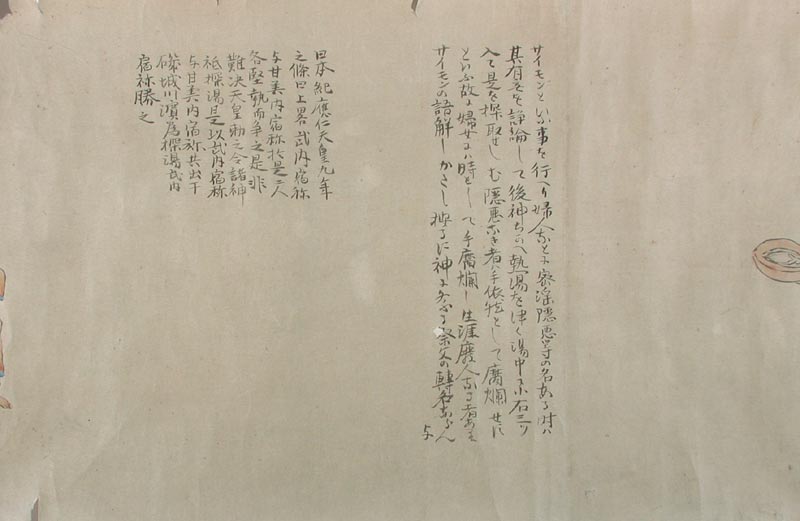 サイモンといふ事を行へり婦人なとに密淫隠悪等の名ある時ハ
其有無を諍論して後神ちかへ熱湯を沸く湯中に小石三ツ
入て是を探取せしむ隠悪なき者ハ手依然として腐爛せす
といふ故に婦女ハ時として手腐爛し生涯廃人なる者あり
サイモンの語解しかたし按るに神に祭文の轉名ならん
与
日本紀應仁天皇九年
之條曰上畧武内宿祢
与甘美内宿祢於是二人
各堅執而争之是非
難决天皇勅之令請神
祗探湯是以武内宿祢
与甘美内宿祢共出于
磯城川濱為探湯武内
宿祢勝之